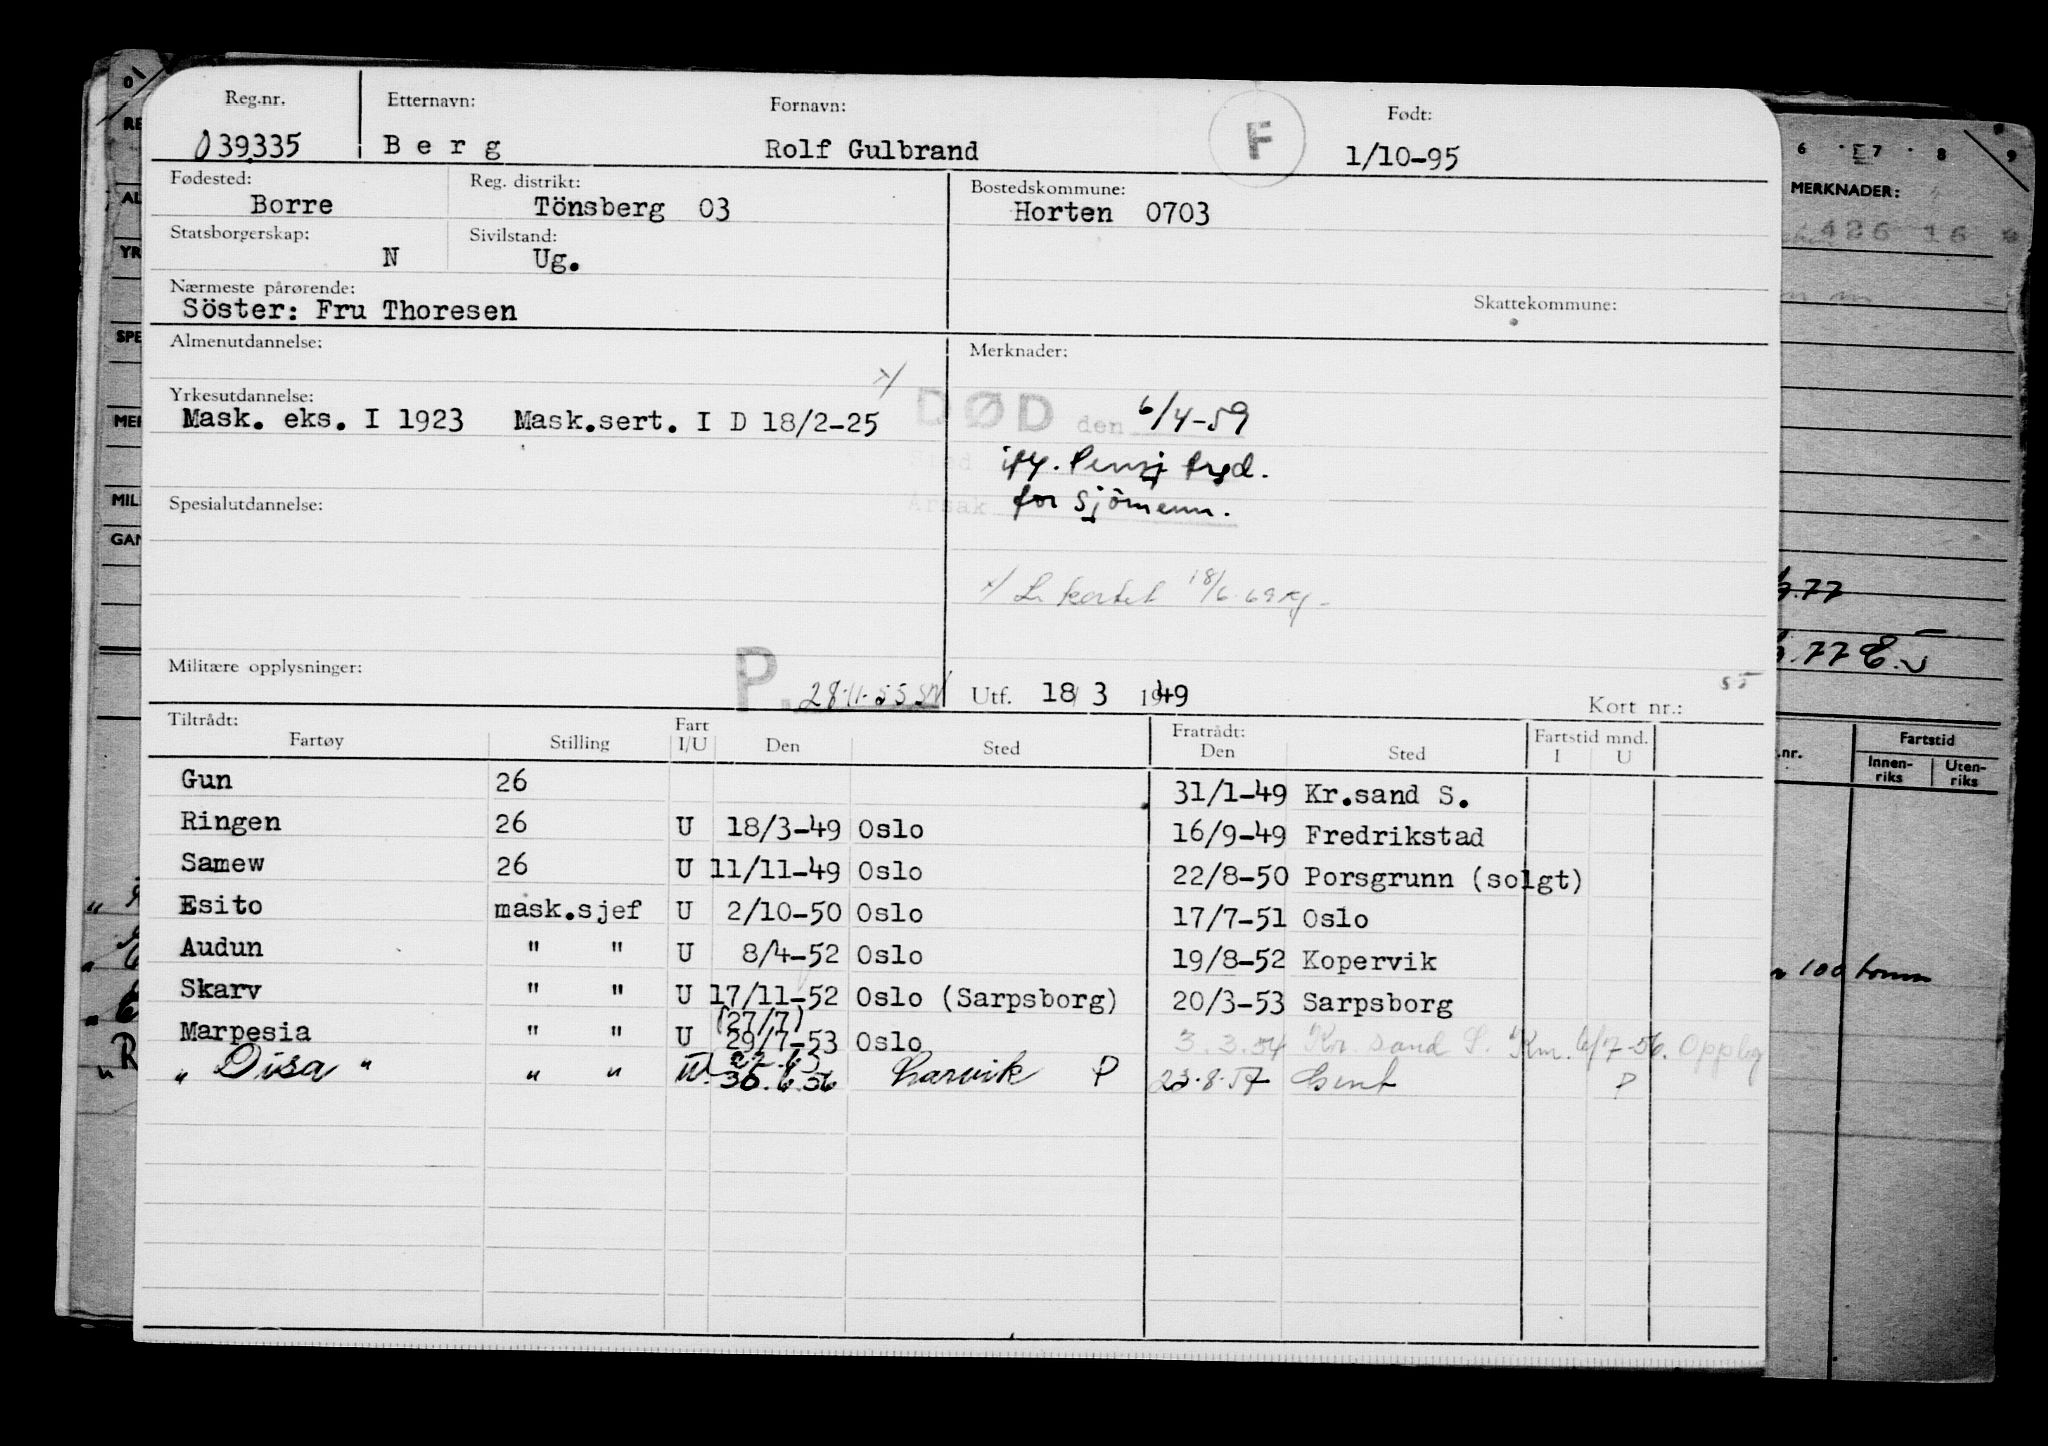 Reg.nr. Etternavn: Fornavn: Født:
039335 Berg Rolf Gulbrand F 1/10-95
Fødested: Reg. distrikt: Bostedskommune:
Borre Tönsberg 03 Horten 0703
Statsborgerskap: Sivilstand:
N Ug.
Nærmeste pårørende: Skattekommune:
Söster: Fru Thoresen
Almenutdannelse: Merknader:
Yrkesutdannelse:
Mask. eks. I 1923 Mask.sert. I D 18/2-25
DØD den 6/4-59
Sted
Årsak for Sjömenn.
Spesialutdannelse:
18/6.69
Militære opplysninger:
P. 28.11.55 Utf. 18/3 1949 Kort nr.:
Tiltrådt: Fart Fratrådt: Fartstid mnd.
Fartøy Stilling I/U Den Sted Den Sted I U
Gun 26 31/1-49 Kr.sand S.
Ringen 26 U 18/3-49 Oslo 16/9-49 Fredrikstad
Samew 26 U 11/11-49 Oslo 22/8-50 Porsgrunn (solgt)
Esito mask.sjef U 2/10-50 Oslo 17/7-51 Oslo
Audun " " U 8/4-52 Oslo 19/8-52 Kopervik
Skarv " " U 17/11-52 Oslo (Sarpsborg) 20/3-53 Sarpsborg
(27/7)
Marpesia " " U 29/7-53 Oslo 3.3.54 Kr.sand S. Km. 6/7-56. Opplag
" Disa " " " U. 30.6.56 Larvik P 23.8.57 Gent P
6 7 8 9
MERKNADER:
426 16
.77
.77
.nr. Fartstid
Innen-
riks Uten-
riks
100 tonn